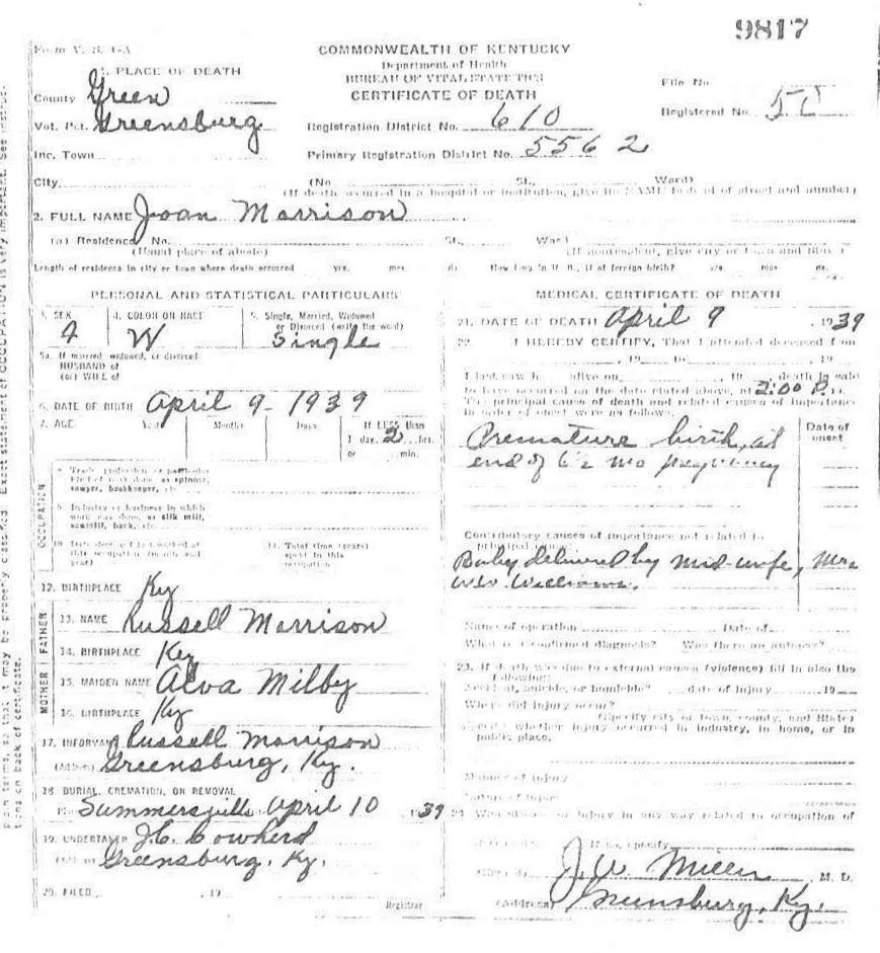 9817
Form V. S. 1-A
COMMONWEALTH OF KENTUCKY
Department of Health
BUREAU OF VITAL STATISTICS
CERTIFICATE OF DEATH
1. PLACE OF DEATH
County Green
Vot. Pct. Greensburg
Inc. Town
City
File No.
Registered No. 50
Registration District No. 610
Primary Registration District No. 5562
(No. St., Ward)
(If death occurred in a hospital or institution, give its NAME instead of street and number)
2. FULL NAME Joan Morrison
(a) Residence, No. St., Ward
(Usual place of abode) (If nonresident, give city or town and State)
Length of residence in city or town where death occurred yrs. mos. ds. How long in U. S., if of foreign birth? yrs. mos. ds.
PERSONAL AND STATISTICAL PARTICULARS
3. SEX 4. COLOR OR RACE 5. Single, Married, Widowed
or Divorced (write the word)
W Single
5a. If married, widowed, or divorced
HUSBAND of
(or) WIFE of
6. DATE OF BIRTH April 9 - 1939
7. AGE Years Months Days If LESS than
1 day, 2 hrs.
or min.
OCCUPATION
8. Trade, profession, or particular
kind of work done, as spinner,
sawyer, bookkeeper, etc.
9. Industry or business in which
work was done, as silk mill,
sawmill, bank, etc.
10. Date deceased last worked at
this occupation (month and
year)
11. Total time (years)
spent in this
occupation
12. BIRTHPLACE Ky
FATHER
13. NAME Russell Morrison
14. BIRTHPLACE Ky
MOTHER
15. MAIDEN NAME Alva Milby
16. BIRTHPLACE Ky
17. INFORMANT Russell Morrison
(Address) Greensburg, Ky.
18. BURIAL, CREMATION, OR REMOVAL
Place Summersville April 10, 1939
19. UNDERTAKER J.C. Cowherd
Greensburg, Ky.
20. FILED , 19
Registrar
MEDICAL CERTIFICATE OF DEATH
21. DATE OF DEATH April 9, 1939
22. I HEREBY CERTIFY, That I attended deceased from
, 19 to , 19
I last saw h alive on , 19 death is said
to have occurred on the date stated above, at 2:00 P.m.
The principal cause of death and related causes of importance
in order of onset were as follows:
Date of
onset
Premature birth, at
end of 6 1/2 mo pregnancy
Contributory causes of importance not related to
principal cause:
Baby delivered by mid-wife, Mrs
W.W. Williams.
Name of operation Date of
What test confirmed diagnosis? Was there an autopsy?
23. If death was due to external causes (violence) fill in also the
following:
Accident, suicide, or homicide? date of injury 19
Where did injury occur?
(Specify city or town, county, and State)
Specify whether injury occurred in industry, in home, or in
public place.
Manner of injury
Nature of injury
24. Was disease or injury in any way related to occupation of
deceased? If so, specify
(Signed) J.W. Miller, M. D.
(Address) Greensburg, Ky.
plain terms, so that it may be properly classified. Exact statement of OCCUPATION is very important. See instruc-
tions on back of certificate.